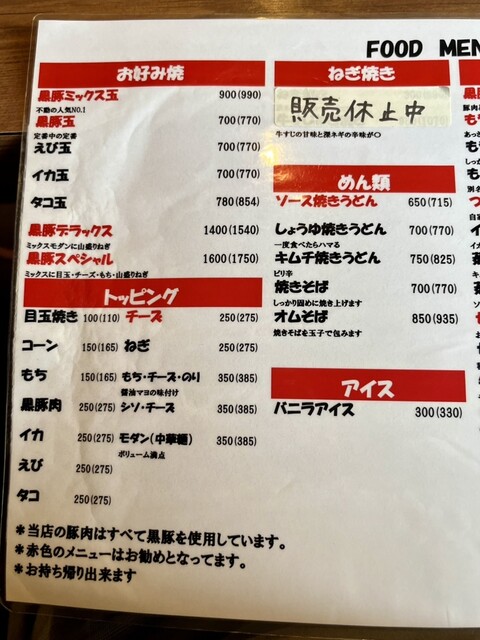 FOOD MEN
お好み焼
黒豚ミックス玉 900(990)
不動の人気NO.1
黒豚玉 700(770)
定番中の定番
えび玉 700(770)
イカ玉 700(770)
タコ玉 780(854)
黒豚デラックス 1400(1540)
ミックスモダンに山盛りねぎ
黒豚スペシャル 1600(1750)
ミックスに目玉・チーズ・もち・山盛りねぎ
トッピング
目玉焼き 100(110) チーズ 250(275)
コーン 150(165) ねぎ 250(275)
もち 150(165) もち・チーズ・のり 350(385)
醤油マヨの味付け
黒豚肉 250(275) シソ・チーズ 350(385)
イカ 250(275) モダン(中華麺) 350(385)
ボリューム満点
えび 250(275)
タコ 250(275)
ねぎ焼き
販売休止中
牛すじの甘味と深ネギの辛味が〇
めん類
ソース焼きうどん 650(715)
しょうゆ焼きうどん 700(770)
一度食べたらハマる
キムチ焼きうどん 750(825)
ピリ辛
焼きそば 700(770)
しっかり固めに焼き上げます
オムそば 850(935)
焼きそばを玉子で包みます
アイス
バニラアイス 300(330)
＊当店の豚肉はすべて黒豚を使用しています。
＊赤色のメニューはお勧めとなってます。
＊お持ち帰り出来ます